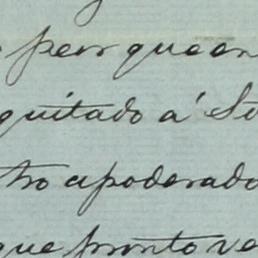 pero que en
quitado á Su
tro apoderado
que pronto ve